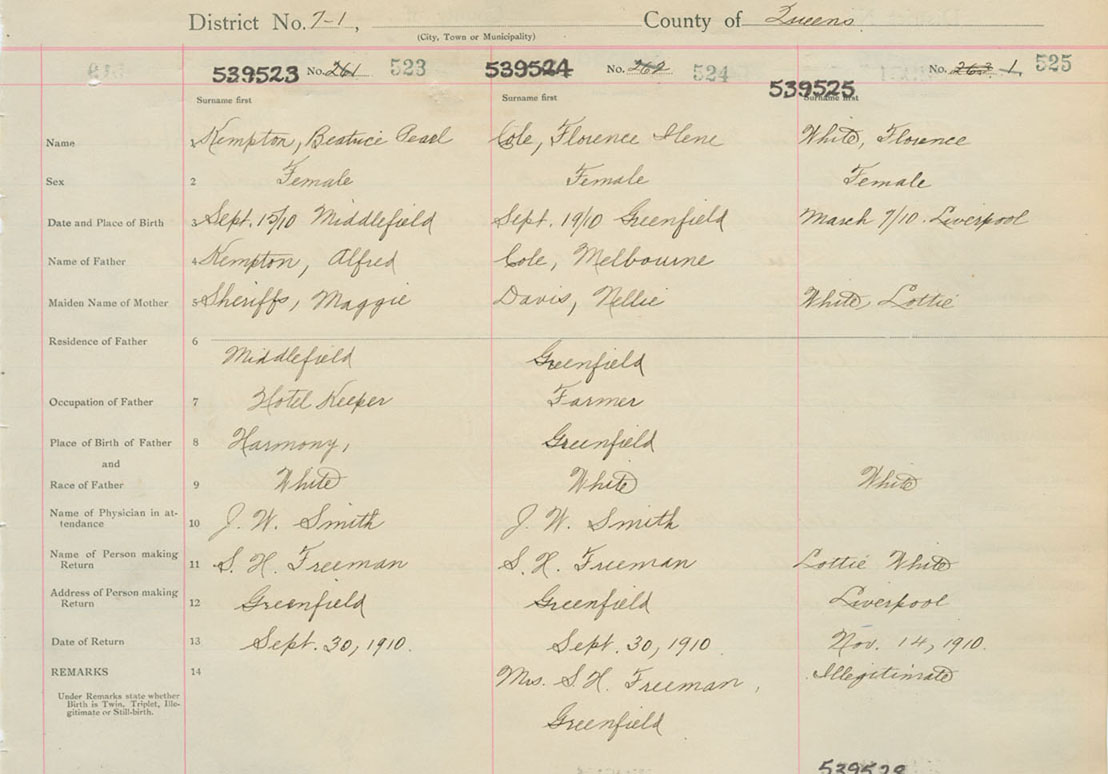 District No. 7-1, County of Queens
(City, Town or Municipality)
539523 No. 261 523 539524 No. 262 524 539525 No. 263 1, 525
Surname first Surname first Surname first
Name 1 Kempton, Beatrice Pearl Cole, Florence Ilene White, Florence
Sex 2 Female Female Female
Date and Place of Birth 3 Sept. 15/10 Middlefield Sept. 19/10 Greenfield March 7/10. Liverpool
Name of Father 4 Kempton, Alfred Cole, Melbourne
Maiden Name of Mother 5 Sheriffs, Maggie Davis, Nellie White, Lottie
Residence of Father 6 Middlefield Greenfield
Occupation of Father 7 Hotel Keeper Farmer
Place of Birth of Father 8 Harmony, Greenfield
and
Race of Father 9 White White White
Name of Physician in at-
tendance 10 J. W. Smith J. W. Smith
Name of Person making
Return 11 S. H. Freeman S. H. Freeman Lottie White
Address of Person making
Return 12 Greenfield Greenfield Liverpool
Date of Return 13 Sept. 30, 1910. Sept. 30, 1910 Nov. 14, 1910.
REMARKS 14 Mrs. S. H. Freeman, Illegitimate
Under Remarks state whether
Birth is Twin, Triplet, Ille-
gitimate or Still-birth.
Greenfield